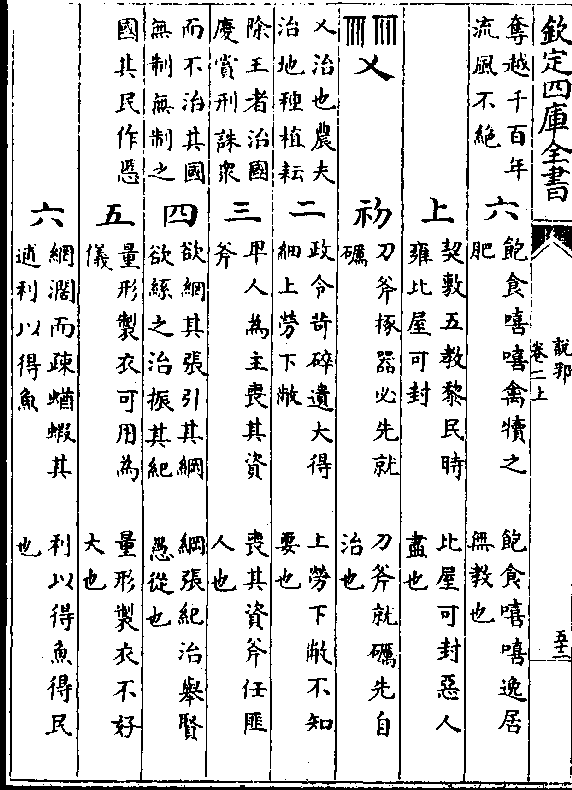 欽定四庫全書
說郛
卷二上
五十二
奪越千百年
流風不絕
六
飽食嘻嘻禽犢之
肥
飽食嘻嘻逸居
無教也
上
契敷五教黎民時
雍比屋可封
比屋可封惡人
盡也
乂
初
刀斧琢器必先就
礪
刀斧就礪先自
治也
乂治也農夫
治地種植耘
二
政令苛碎遺大得
細上勞下敝
上勞下敝不知
要也
除王者治國
慶賞刑誅衆
三
早人為主喪其資
斧
喪其資斧任匪
人也
而不治其國
無制無制之
四
欲網其張引其綱
欲絲之治振其紀
綱張紀治舉賢
愚從也
國其民作慝
五
量形製衣可用為
儀
量形製衣不好
大也
六
網濶而疎蝤蝦其
逋利以得魚
利以得魚得民
也